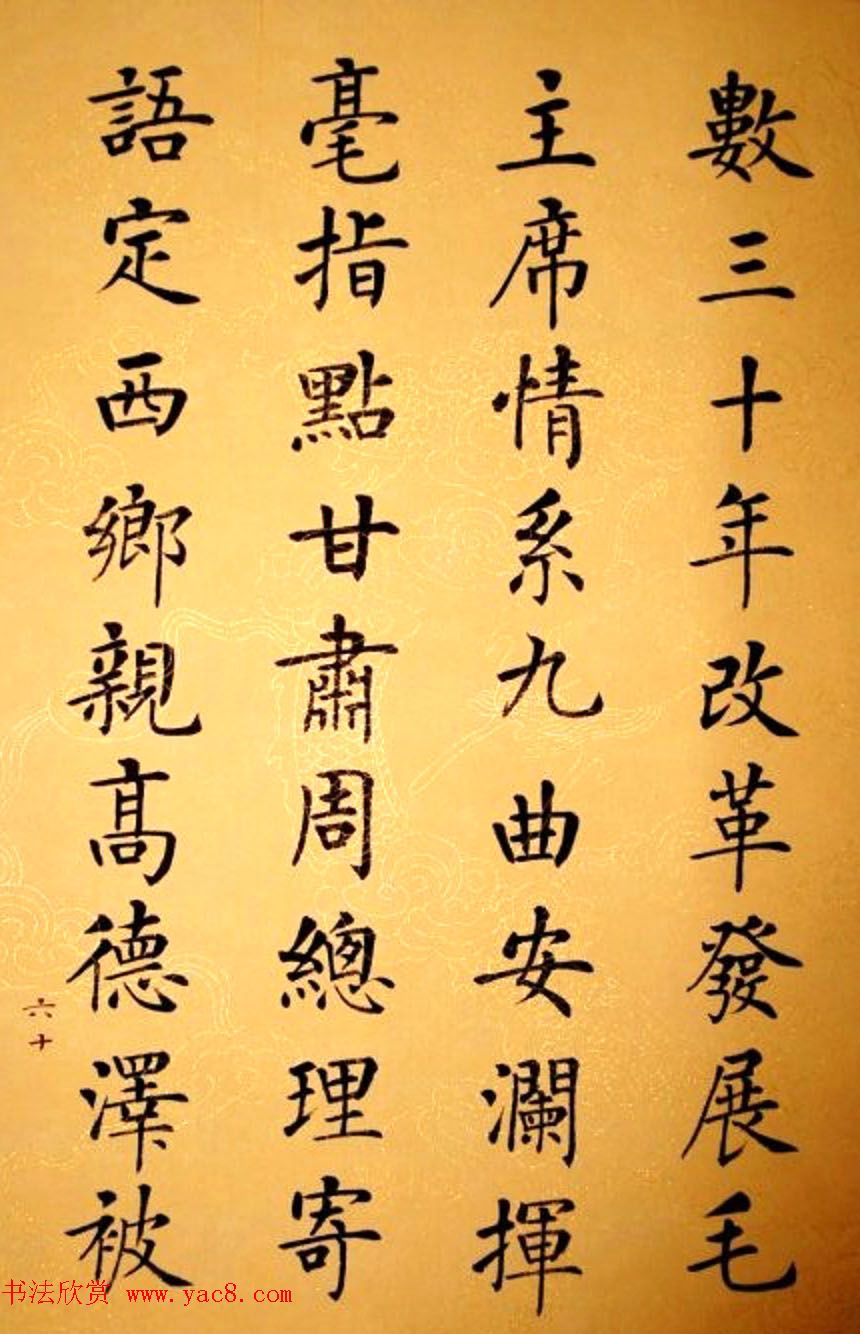 數三十年改革發展毛
主席情系九曲安瀾揮
毫指點甘肅周總理寄
語定西鄉親高德澤被
六十
书法欣赏 www.yac8.com